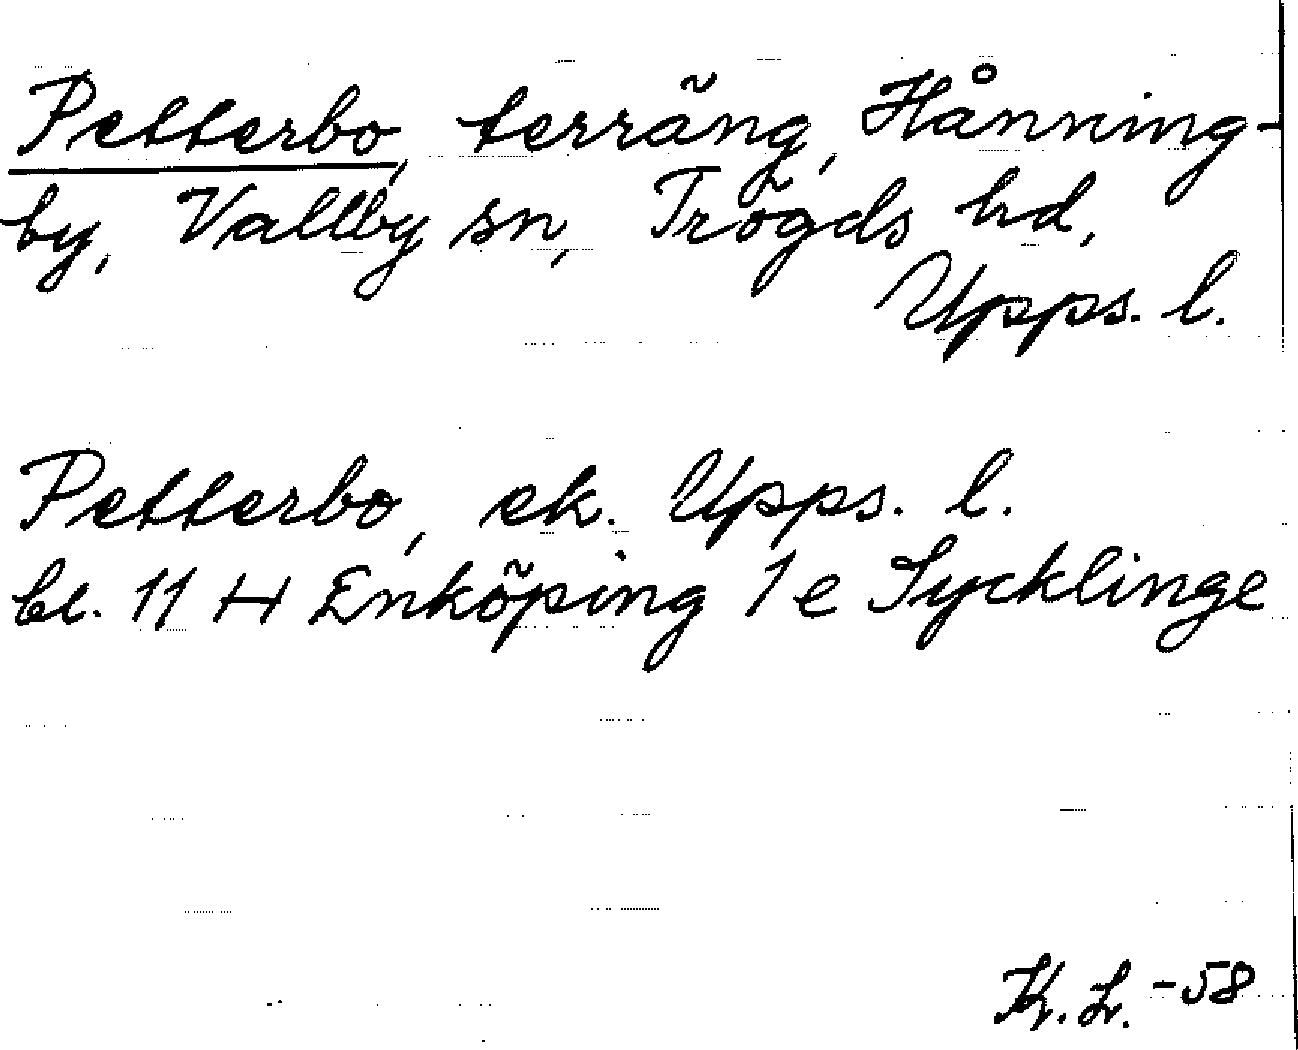 Petterbo, terräng, Hånning-
by, Vallby sn, Trögds hd,
Upps. l.
Petterbo, ek. Upps. l.
bl. 11 H Enköping 1 e Sycklinge
K. L. -58